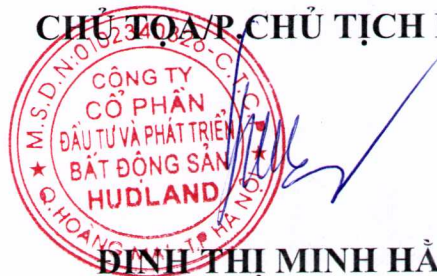 CHỦ TỌA/P.CHỦ TỊCH
M.S.D.N:0102340326-C.T.C.P
CÔNG TY
CỔ PHẦN
ĐẦU TƯ VÀ PHÁT TRIỂN
BẤT ĐỘNG SẢN
HUDLAND
Q.HOÀNG MAI, T.P HÀ NỘI
ĐINH THỊ MINH HẰ